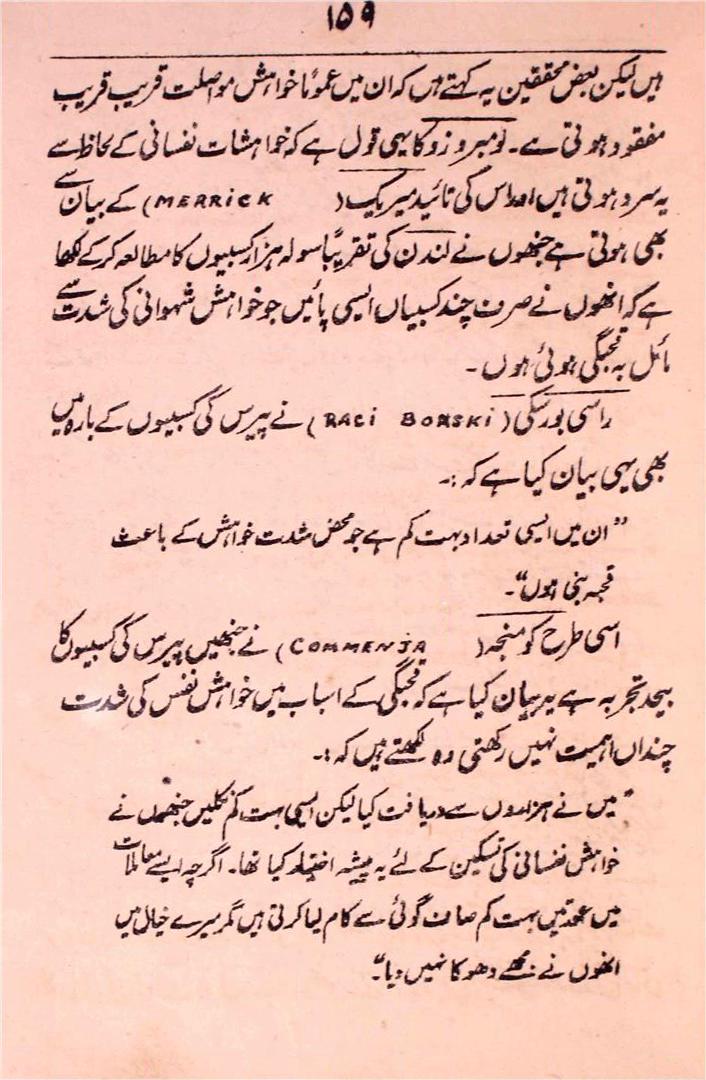 ۱۵۹
ہیں لیکن بعض محققین یہ کہتے ہیں کہ ان میں عموماً خواہش مواصلت قریب قریب
مفقود ہوتی ہے۔ لومبروزو کا یہی قول ہے کہ خواہشات نفسانی کے لحاظ سے
یہ سرد ہوتی ہیں اور اس کی تائید میریک (MERRICK) کے بیان سے
بھی ہوتی ہے جنھوں نے لندن کی تقریباً سولہ ہزار کسبیوں کا مطالعہ کرکے لکھا
ہے کہ انھوں نے صرف چند کسبیاں ایسی پائیں جو خواہش شہوانی کی شدت سے
مائل بہ قحبگی ہوئی ہوں۔
راسی بورسکی (RACI BORSKI) نے پیرس کی کسبیوں کے بارہ میں
بھی یہی بیان کیا ہے کہ :۔
”ان میں ایسی تعداد بہت کم ہے جو محض شدت خواہش کے باعث
قحبہ بنی ہوں“۔
اسی طرح کومنجہ (COMMENJA) نے جنھیں پیرس کی کسبیوں کا
بیحد تجربہ ہے یہ بیان کیا ہے کہ قحبگی کے اسباب میں خواہش نفس کی شدت
چنداں اہمیت نہیں رکھتی وہ لکھتے ہیں کہ :۔
”میں نے ہزاروں سے دریافت کیا لیکن ایسی بہت کم نکلیں جنھوں نے
خواہش نفسانی کی تسکین کے لئے یہ پیشہ اختیار کیا تھا۔ اگرچہ ایسے معاملات
میں عورتیں بہت کم صاف گوئی سے کام لیا کرتی ہیں مگر میرے خیال میں
انھوں نے مجھے دھوکا نہیں دیا“۔